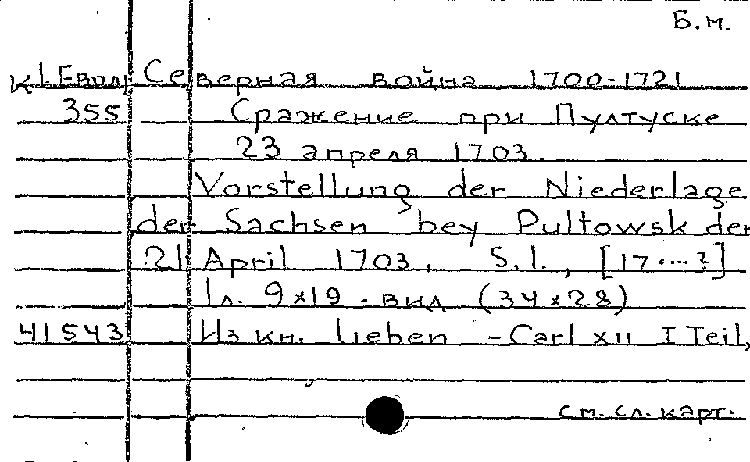 Б.м.
К1.Европ Северная война 1700-1721
355 Сражение при Пултуске
23 апреля 1703.
Vorstellung der Niederlage
der Sachsen bey Pultowsk der
21 April 1703. S.l., [17...?]
1л. 9x19 - вид (34x28)
41543 Из кн. Lieben - Carl XII I Teil,
см. сл. карт.